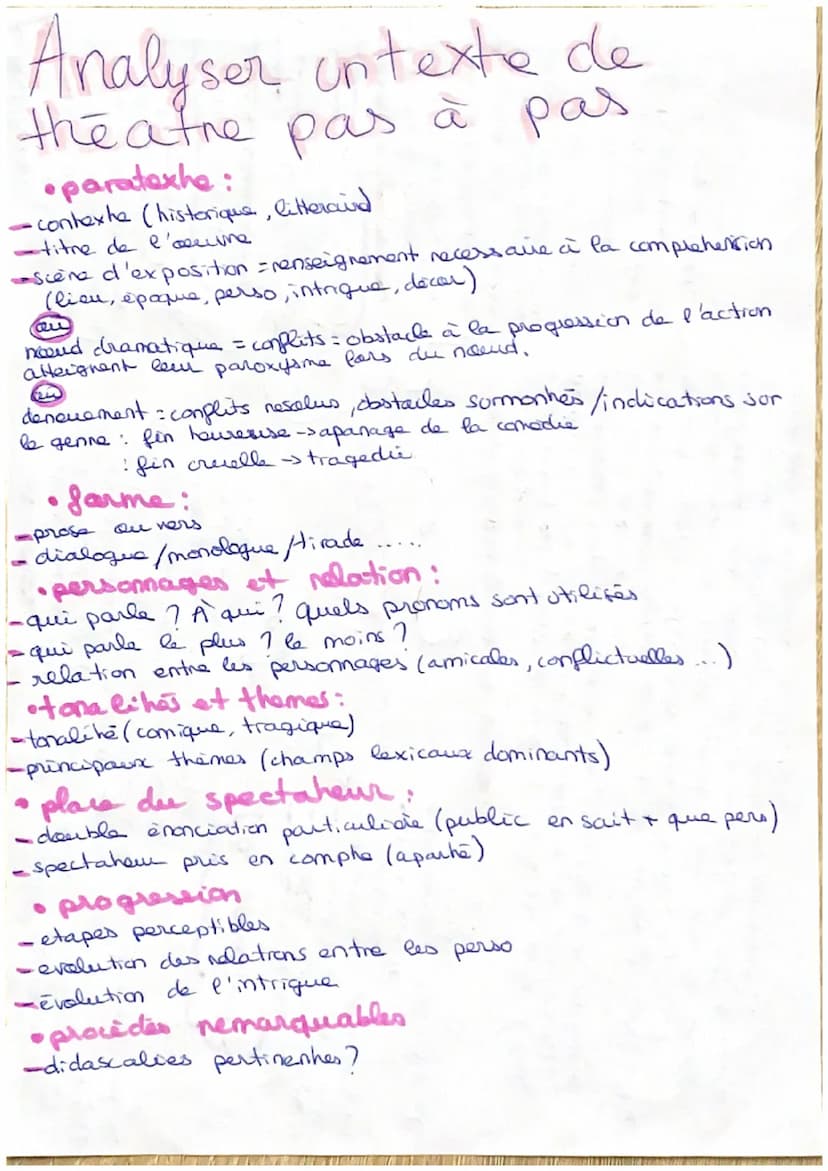 Analyser un texte de
théatre pas à pas
• paratexte :
- contexte (historique, litteraire)
- titre de l'oeuvre
- scène d'exposition = renseignement necessaire à la comprehension
(lieu, époque, perso, intrigue, décor)
ou
noeud dramatique = conflits = obstacle à la progression de l'action
atteignent leur paroxysme lors du noeud.
ou
denouement = conflits resolus, obstacles surmontés / indications sur
le genre : fin heureuse -> apanage de la comédie
: fin cruelle -> tragedie
• forme :
- prose ou vers
- dialogue / monologue / tirade .....
• personnages et relation :
- qui parle ? À qui ? Quels pronoms sont utilisés
- qui parle le plus ? le moins ?
- relation entre les personnages (amicales, conflictuelles ...)
• tonalités et themes :
- tonalité (comique, tragique)
- principaux thèmes (champs lexicaux dominants)
• place du spectateur :
- double énonciation particulière (public en sait + que pers)
- spectateur pris en compte (aparté)
• progression
- etapes perceptibles
- evolution des relations entre les perso
- évolution de l'intrigue
• procédés remarquables
- didascalies pertinentes ?